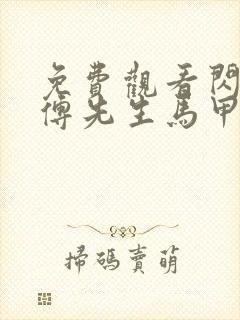 免費觀看閃
傅先生馬甲
掃碼賣萌